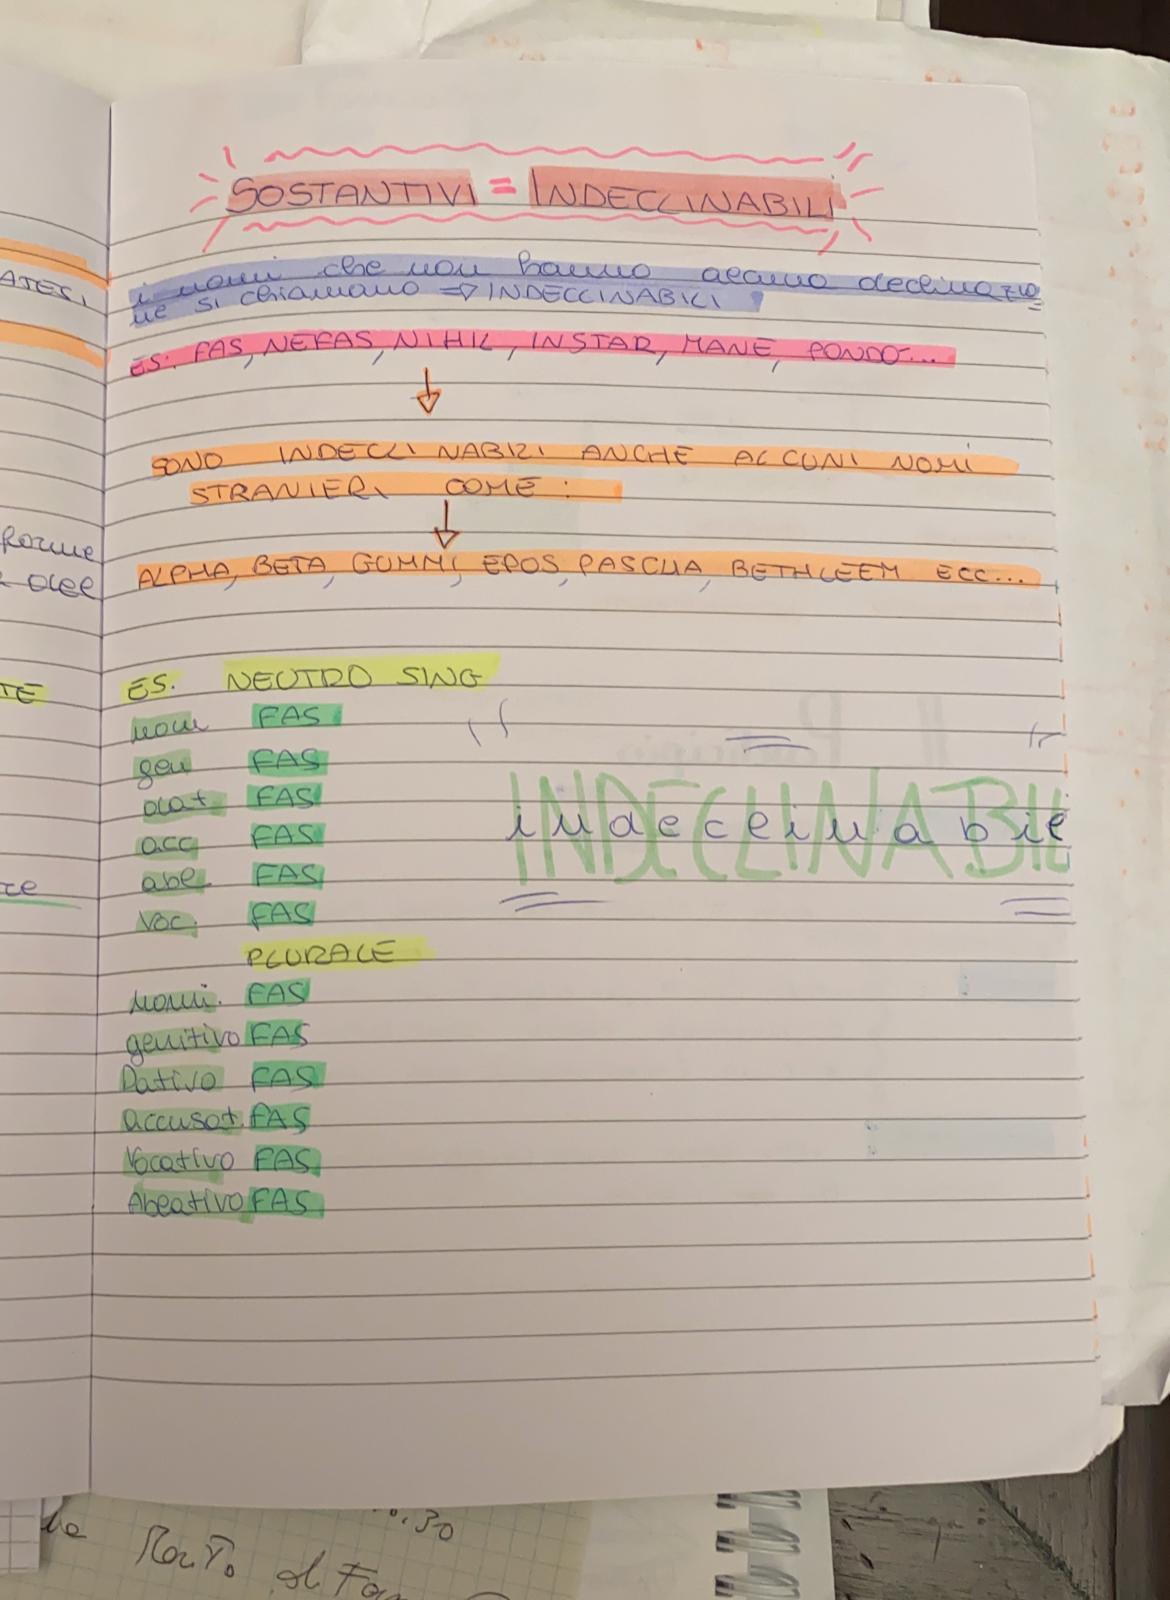 SOSTANTIVI = INDECLINABILI
i nomi che non hanno alcuna declinazio
ne si chiamano => INDECLINABILI
ES: FAS, NEFAS, NIHIL, INSTAR, MANE, PONDO...
SONO INDECLINABILI ANCHE ALCUNI NOMI
STRANIERI COME :
ALPHA, BETA, GUMMI, EPOS, PASCHA, BETHLEEM ECC...
ES. NEUTRO SING
nom FAS
gen FAS
dat FAS
acc FAS
abl FAS
voc. FAS
INDECLINABIL
indeclinabil
PLURALE
Nomi. FAS
genitivo FAS
Dativo FAS
accusat. FAS
Vocativo FAS
Ablativo FAS
ATESI
forme
TE
.30